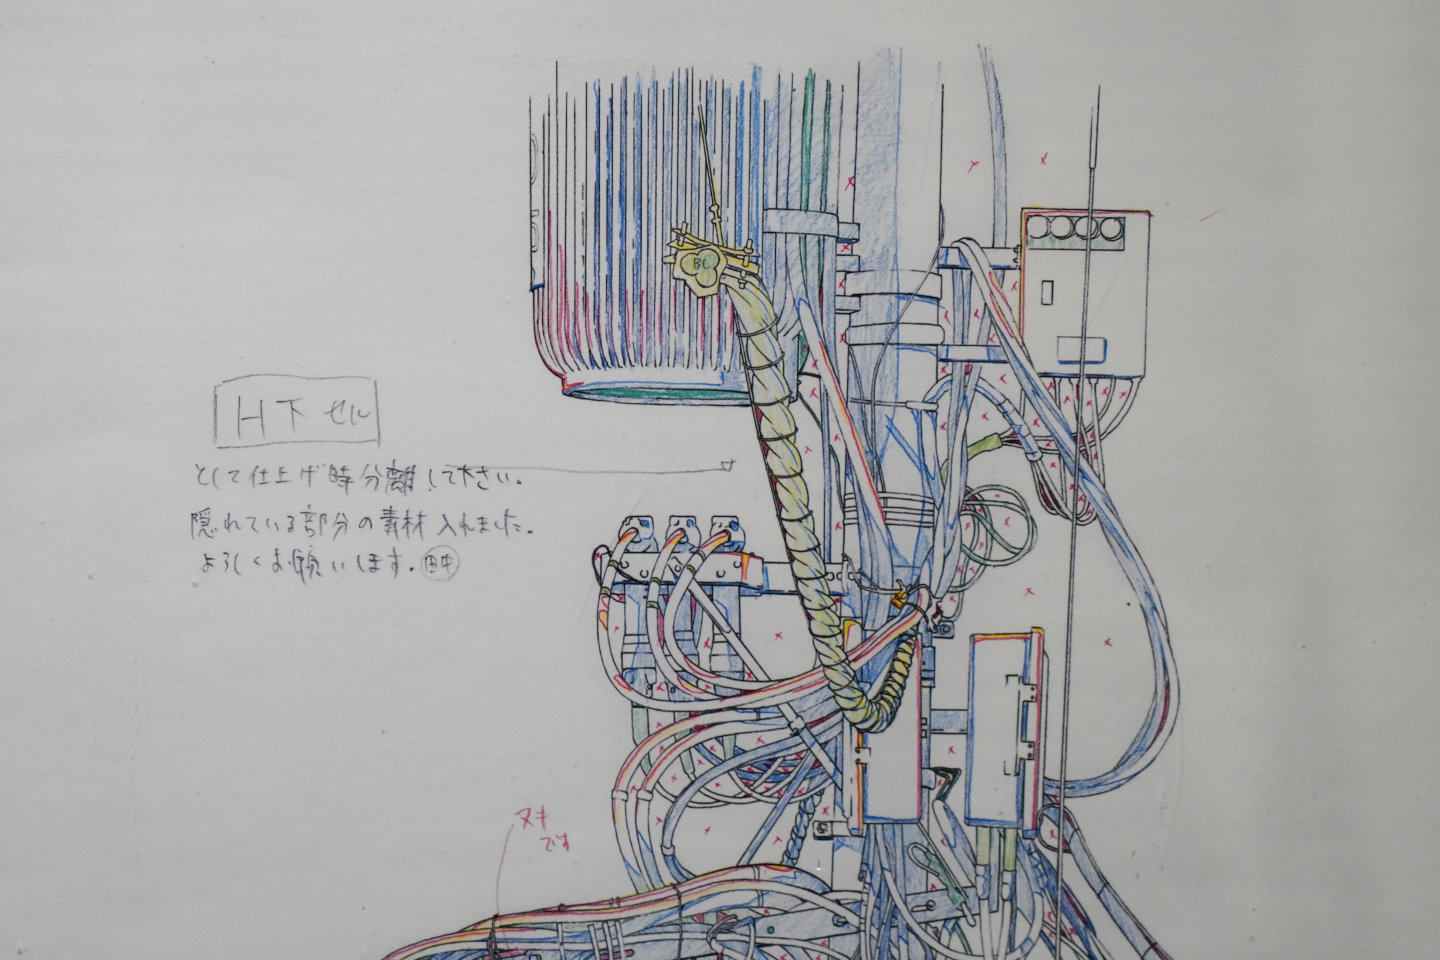 H下セル
として仕上げ時分離して下さい。
隠れている部分の素材入れました。
よろしくお願いします。
BL
ヌキ
です